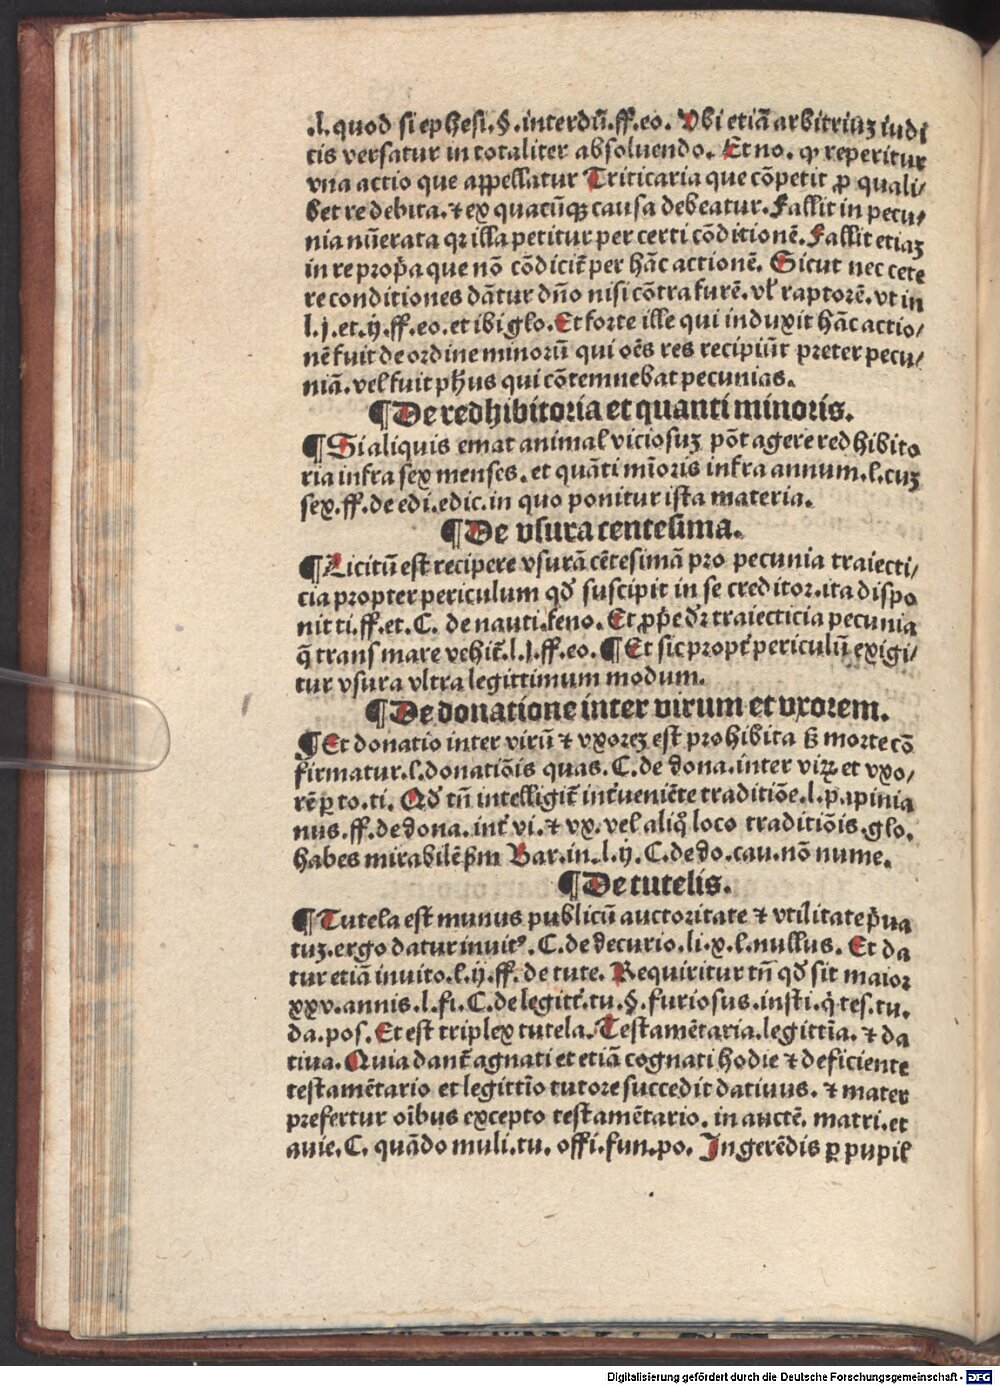 .l. quod si ephesi. §. interdū. ff. eo. Vbi etiā arbitriuꝫ iudi
cis versatur in totaliter absoluendo. Et no. ꝙ reperitur
vna actio que appellatur Triticaria que cōpetit ꝓ quali/
bet re debita. ⁊ ex quacūqꝫ causa debeatur. Fallit in pecu/
nia nūerata qꝛ illa petitur per certi cōditionē. Fallit etiaꝫ
in re prop̄a que nō cōdicit̄ per hāc actionē. Sicut nec cete
re conditiones dātur dn̄o nisi cōtra furē. vl̓ raptorē. vt in
l. j. et. ij. ff. eo. et ibi glo. Et forte ille qui induxit hāc actio/
nē fuit de ordine minorū qui oēs res recipiūt preter pecu/
niā. vel fuit ph̄us qui cōtemnebat pecunias.
¶ De redhibitoria et quanti minoris.
¶ Si aliquis emat animal viciosuꝫ pōt agere redhibito
ria infra sex menses. et quāti mīoris infra annum. l. cuꝫ
sex. ff. de edi. edic. in quo ponitur ista materia.
¶ De vsura centesima.
¶ Licitū est recipere vsurā cētesimā pro pecunia traiecti/
cia propter periculum qd̄ suscipit in se creditor. ita dispo
nit ti. ff. et. C. de nauti. feno. Et ꝓp̄e dr̄ traiecticia pecunia
q̄ trans mare vehit̄. l. j. ff. eo. ¶ Et sic propt̄ periculū exigi/
tur vsura vltra legittimum modum.
¶ De donatione inter virum et vxorem.
¶ Et donatio inter virū ⁊ vxoreꝫ est prohibita sꝫ morte cō
firmatur. l. donatiōis quas. C. de dona. inter viꝝ et vxo/
rē ꝑ to. ti. Qd̄ tn̄ intelligit̄ int̄ueniēte traditiōe. l. papinia
nus. ff. de dona. int̄ vi. ⁊ vx. vel aliqͦ loco traditiōis. glo.
habes mirabilē ẜm Bar. in. l. ij. C. de do. cau. nō nume.
¶ De tutelis.
¶ Tutela est munus publicū auctoritate ⁊ vtilitate p̄ua
tuꝫ. ergo datur inuitꝰ. C. de decurio. li. x. l. nullus. Et da
tur etiā inuito. l. ij. ff. de tute. Requiritur tn̄ qd̄ sit maior
xxv. annis. l. fi. C. de legitt̄. tu. §. furiosus. insti. q̇ tes. tu.
da. pos. Et est triplex tutela. Testamētaria. legittīa. ⁊ da
tiua. Quia dant̄ agnati et etiā cognati hodie ⁊ deficiente
testamētario et legittīo tutore succedit datiuus. ⁊ mater
prefertur oībus excepto testamētario. in auctē. matri. et
auie. C. quādo muli. tu. offi. fun. po. In gerēdis ꝑ pupil
Digitalisierung gefördert durch die Deutsche Forschungsgemeinschaft - DFG